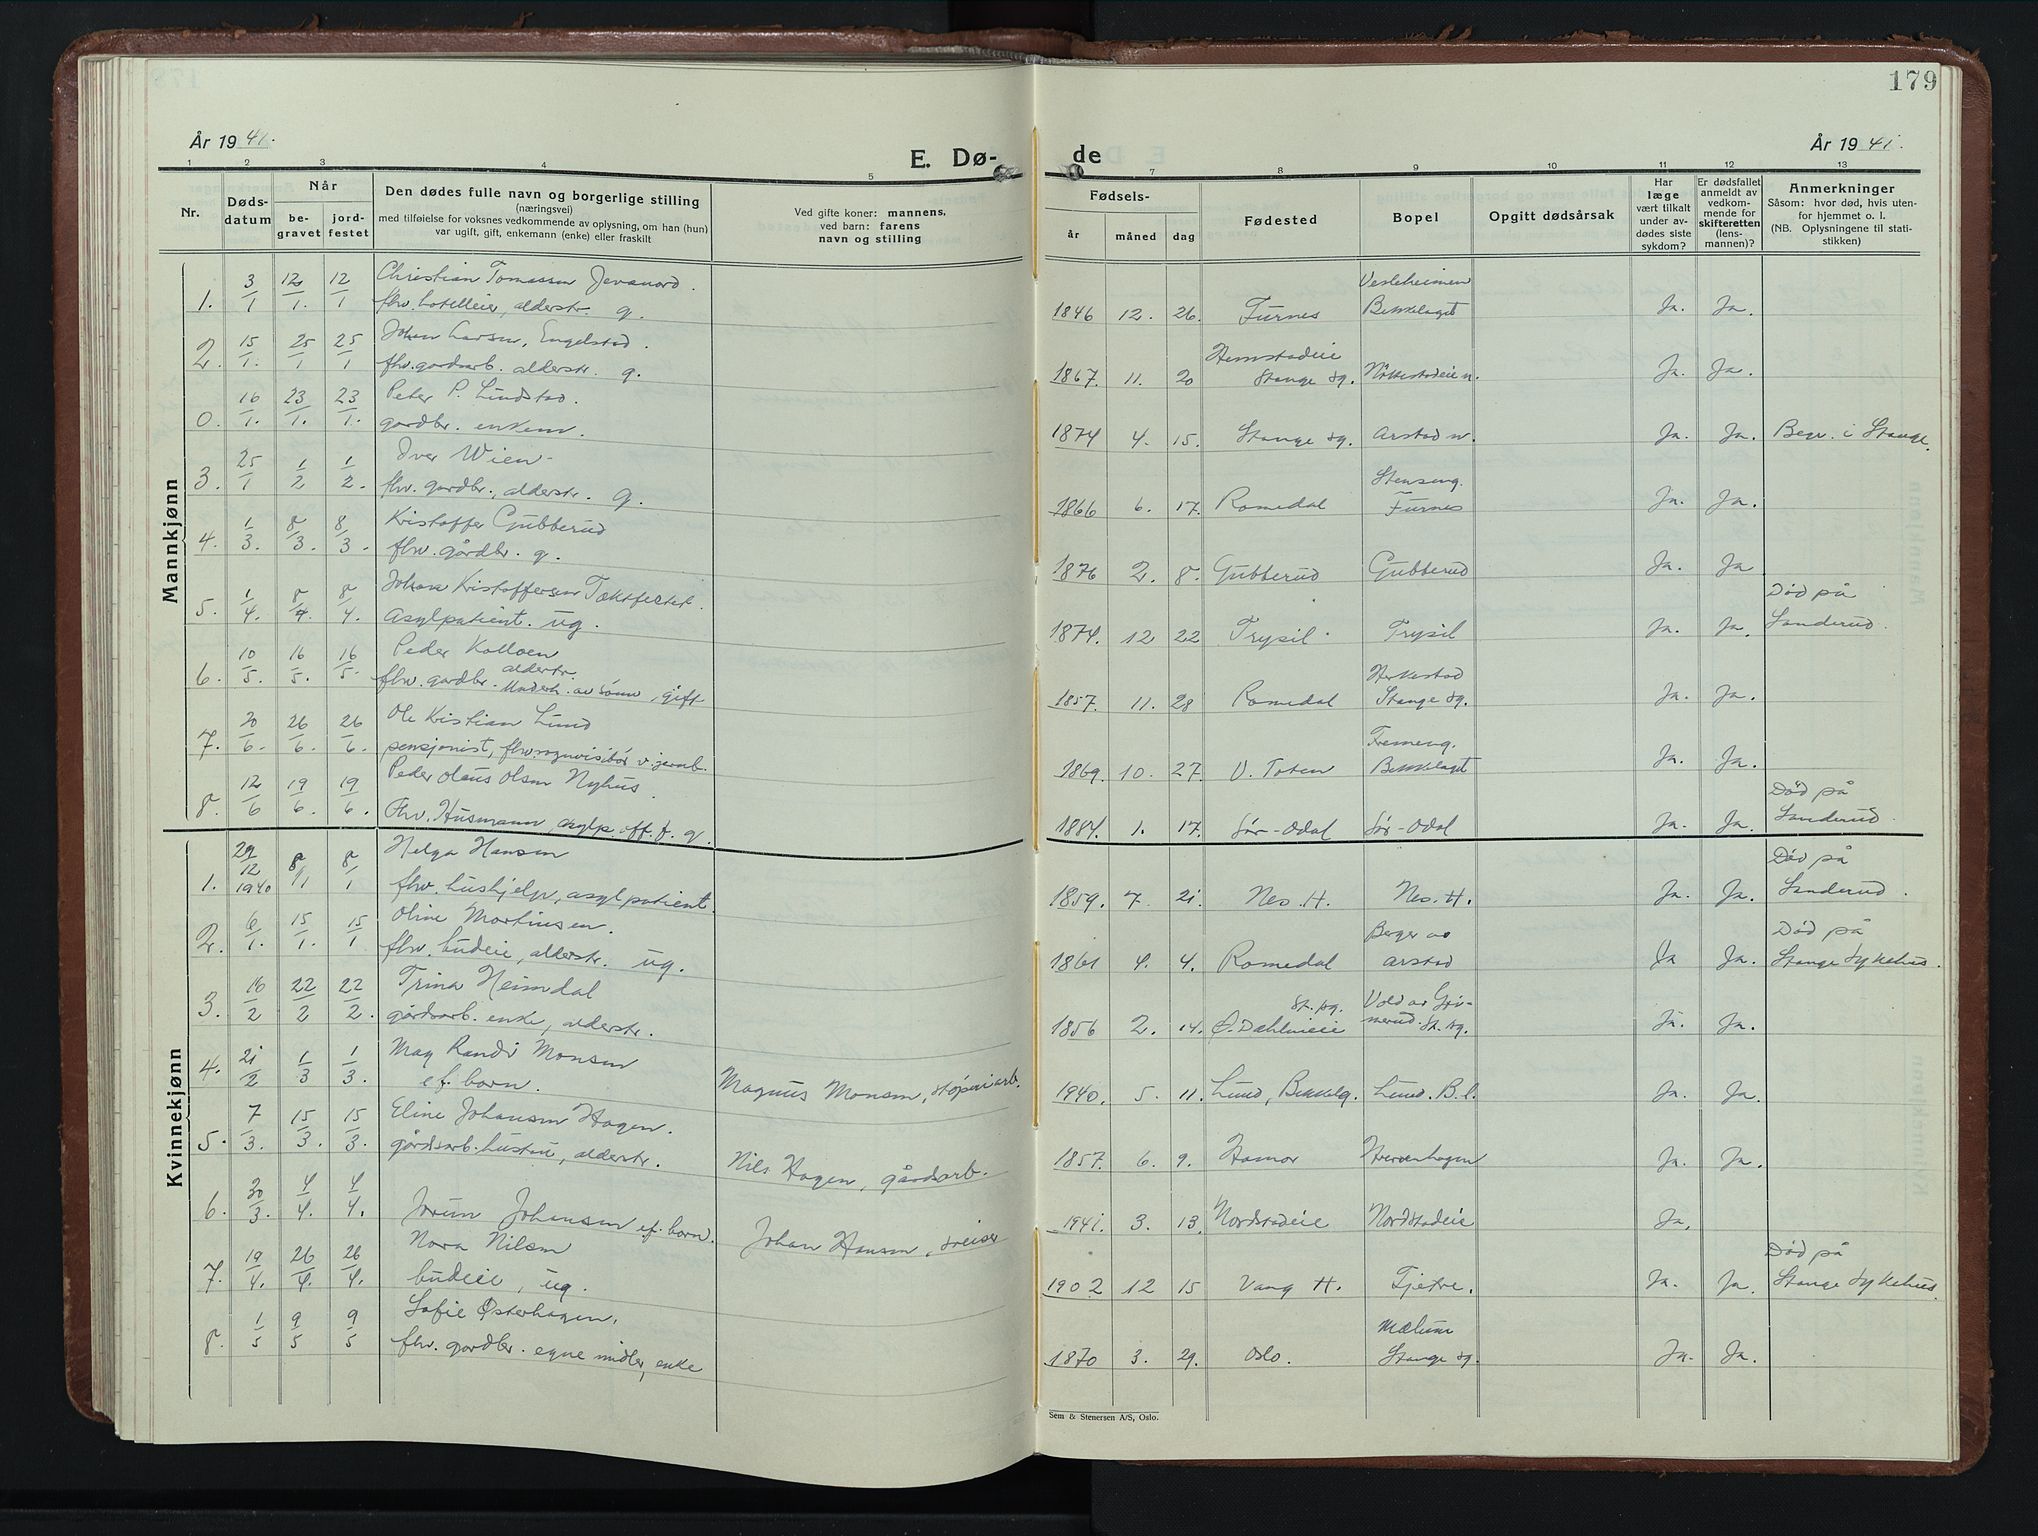 179
År 1941.
E. Dø-
de
År 1941.
1 2 3 4 5 7 8 9 10 11 12 13
Nr.
Dødsdatum
Når
begravet
jordfestet
Den dødes fulle navn og borgerlige stilling
(næringsvei)
med tilføielse for voksnes vedkommende av oplysning, om han (hun)
var ugift, gift, enkemann (enke) eller fraskilt
Ved gifte koner: mannens,
ved barn: farens
navn og stilling
Fødsels-
år
måned
dag
Fødested
Bopel
Opgitt dødsårsak
Har
læge
vært tilkalt
under av-
dødes siste
sykdom?
Er dødsfallet
anmeldt av
vedkom-
mende for
skifteretten
(lens-
mannen)?
Anmerkninger
Såsom: hvor død, hvis uten-
for hjemmet o. l.
(NB. Oplysningene til stati-
stikken)
Mannkjønn
1. 3/1 12/1. 12/1 Christian Tomassen Jevanord.
fhv. hotelleier, alderstr. g.
1846 12. 26. Furnes Vesleheimen Bekkelaget Ja. Ja.
2. 15/1. 25/1 25/1 Johan Larsen, Engelstad.
fhv. gardsarb. alderstr. g.
1867. 11. 20 Hemstadeie Stange sg. Ja. Ja.
0. 16/1. 23/1. 23/1. Peter P. Lindstad.
gardbr. enkem.
1874 4. 15. Stange sg. Arstad n. Ja. Ja. Begr. i Stange
3. 25/1 1/2 1/2. Iver Wien
fhv. gardbr., alderstr. g.
1866 6. 17. Romedal Stenseng. Furnes Ja. Ja.
4. 1/3. 8/3. 8/3. Kristoffer Gubberud
fhv. gårdbr. g.
1876 2. 8. Gubberud Gubberud Ja. Ja
5. 1/4. 8/4. 8/4. Johan Kristoffersen
asylpatient. ug.
1874. 12 22 Trysil. Trysil Ja. Ja. Død på Sanderud.
6. 10/5. 16/5. 16/5. Peder Kolloen
fhv. gardbr. alderstr. Underh. av sønn, gift
1857. 11. 28 Romedal Stange sg. Ja. Ja.
7. 20/6. 26/6. 26/6. Ole Kristian Lund
pensjonist, fhv. vognvisitør v. jernb.
1869. 10. 27. V. Toten Bekkelaget Ja. Ja.
8. 12/6 19/6. 19/6. Peder Olaus Olsen Nyhus
Fhv. Husmann, asylp. off. f. g.
1884. 1. 17. Sør-Odal Sør-Odal Ja. Ja. Død på Sanderud.
Kvinnekjønn
1. 29/12 1940 8/1 8/1 Helga Hansen
fhv. hushjelp, asylpatient.
1859. 7. 21. Nes. H. Nes. H. Ja. Ja. Død på Sanderud.
2. 6/1. 15/1. 15/1 Oline Martinsen.
fhv. budeie, alderstr. ug.
1861 4. 4. Romedal Berger av Arstad Ja Ja. Død på Stange Sykehus.
3. 16/2 22/2 22/2. Trina Heimdal
gårdsarb. enke, alderstr.
1856 2. 14. St. sg. Ø. Dahlmeie Vold av Grimerud. St. sg. Ja. Ja.
4. 21/2 1/3 1/3. May Randi Monsen
ef. barn. Magnus Monsen, støperiarb.
1940. 5. 11. Lund, Bekkelg. Lund. B.l. Ja. Ja.
5. 7/3. 15/3. 15/3. Eline Johansen Hagen.
gårdsarb. hustru, alderstr. Nils Hagen, gårdsarb.
1857. 6. 9. Hamar Ja. Ja.
6. 30/3. 4/4. 4/4. Jorun Johansen ef. barn. Johan Hansen, sveiser
1941. 3. 13. Nordstadeie Nordstadeie Ja.
7. 19/4. 26/4. 26/4. Nora Nilsen
budeie, ug.
1902 12 15 Vang H. Tjetre. Ja. Ja. Død på Stange Sykehus.
8. 1/5 9/5 9/5 Sofie Østerhagen.
fhv. gardbr. egne midler, enke
1870 3. 29. Oslo. Mælum Stange sg. Ja. Ja.
Sem & Stenersen A/S, Oslo.